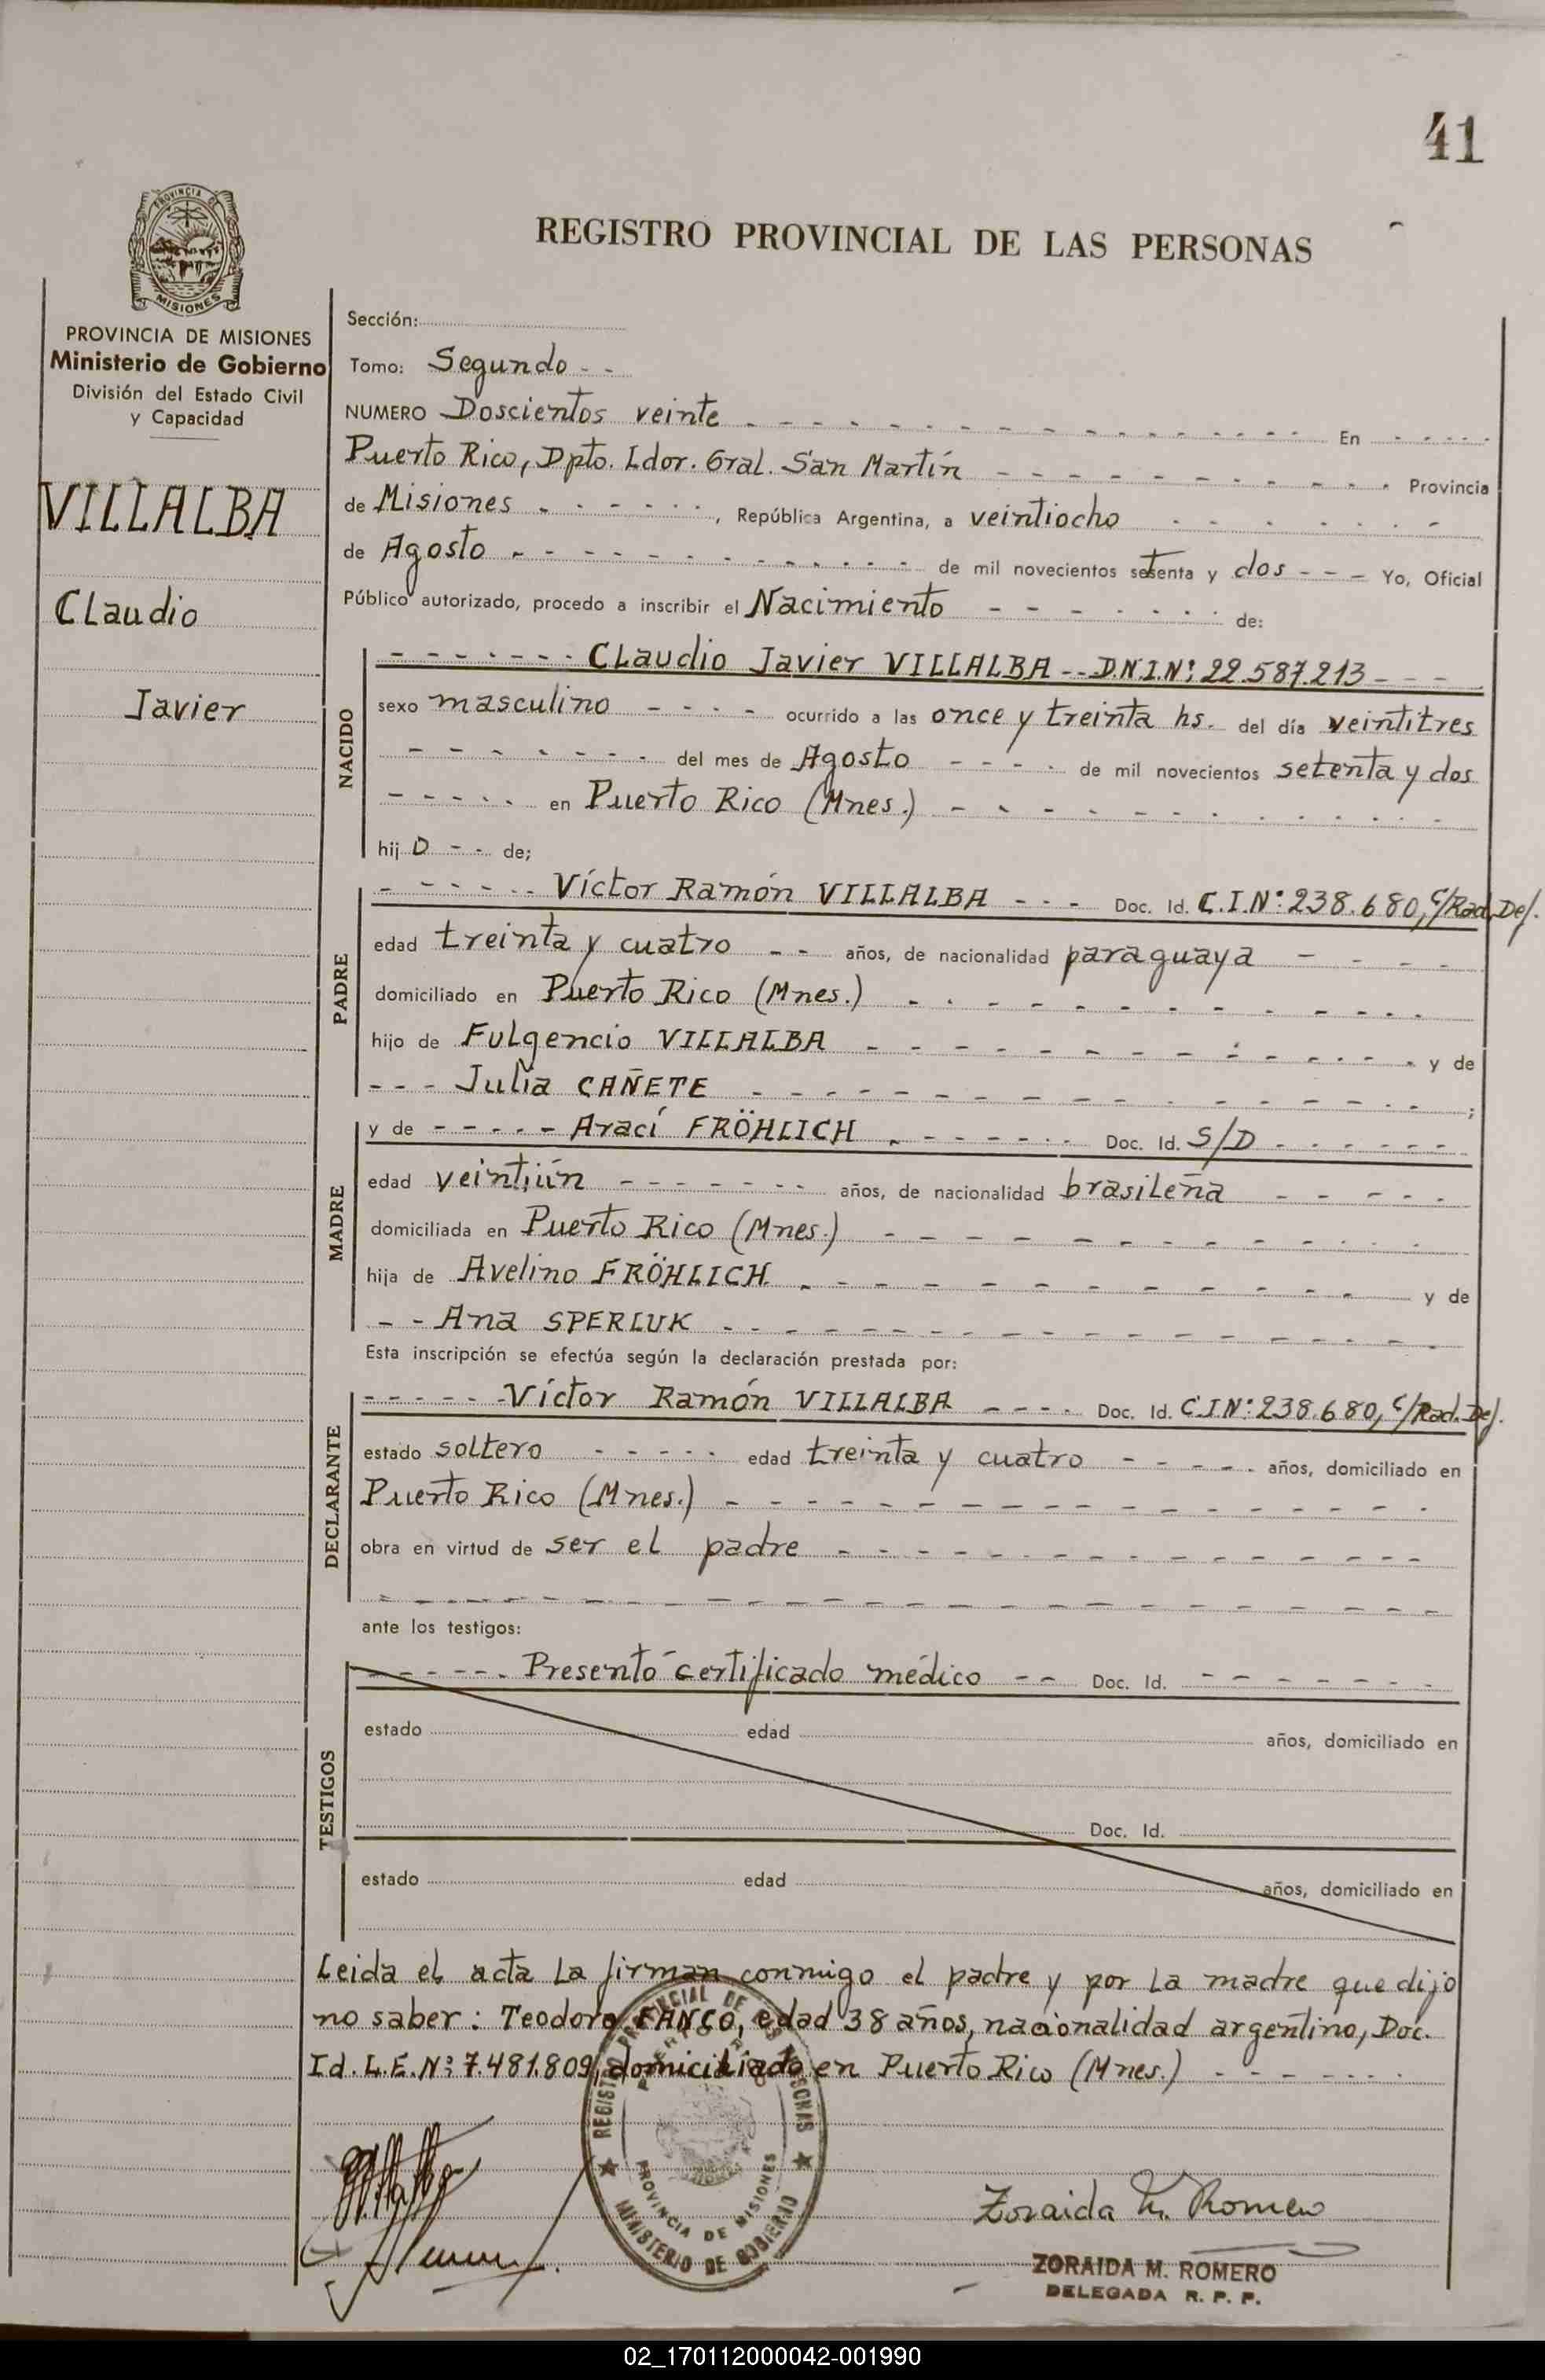 41
PROVINCIA DE
MISIONES
REGISTRO PROVINCIAL DE LAS PERSONAS
PROVINCIA DE MISIONES
Ministerio de Gobierno
División del Estado Civil
y Capacidad
VILLALBA
Claudio
Javier
Sección:
Tomo: Segundo - -
NUMERO Doscientos veinte - - - En - - -
Puerto Rico, Dpto. Ldor. Gral. San Martín - - - Provincia
de Misiones - - -, República Argentina, a veintiocho - - -
de Agosto - - - de mil novecientos setenta y dos - - - Yo, Oficial
Público autorizado, procedo a inscribir el Nacimiento - - - de:
NACIDO
- - - Claudio Javier VILLALBA - - D.N.I.Nº: 22.587.213 - - -
sexo masculino - - - ocurrido a las once y treinta hs. del día veintitres
- - - del mes de Agosto - - - de mil novecientos setenta y dos
- - - en Puerto Rico (Mnes.) - - -
hijo - - de;
PADRE
- - - Víctor Ramón VILLALBA - - - Doc. Id. C.I.Nº: 238.680, c/Rad. Def.
edad treinta y cuatro - - años, de nacionalidad paraguaya - - -
domiciliado en Puerto Rico (Mnes.) - - -
hijo de Fulgencio VILLALBA - - - y de
- - - Julia CAÑETE - - - ;
MADRE
y de - - - Arací FRÖHLICH - - - Doc. Id. S/D - - -
edad veintiún - - - años, de nacionalidad brasileña - - -
domiciliada en Puerto Rico (Mnes.) - - -
hija de Avelino FRÖHLICH - - - y de
- - Ana SPERLUK - - -
Esta inscripción se efectúa según la declaración prestada por:
DECLARANTE
- - - Víctor Ramón VILLALBA - - - Doc. Id. C.I.Nº: 238.680, c/Rad. Def.
estado soltero - - - edad treinta y cuatro - - - años, domiciliado en
Puerto Rico (Mnes.) - - -
obra en virtud de ser el padre - - -
ante los testigos:
TESTIGOS
- - - Presentó certificado médico - - Doc. Id. - - -
estado edad años, domiciliado en
Doc. Id.
estado edad años, domiciliado en
Leida el acta la firman conmigo el padre y por la madre que dijo
no saber: Teodoro FANCO, edad 38 años, nacionalidad argentino, Doc.
Id. L.E.Nº: 7.481.809, domiciliado en Puerto Rico (Mnes.) - - -
REGISTRO PROVINCIAL DE LAS PERSONAS
PROVINCIA DE MISIONES
MINISTERIO DE GOBIERNO
Zoraida M. Romero
ZORAIDA M. ROMERO
DELEGADA R. P. P.
02_170112000042-001990